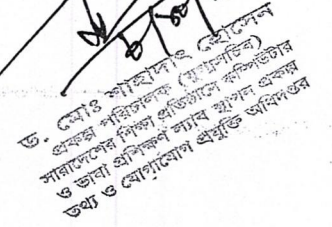 ড. মোঃ সাহাদাৎ হোসেন
প্রকল্প পরিচালক (যুগ্মসচিব)
সারাদেশের শিক্ষা প্রতিষ্ঠানে কম্পিউটার
ও ভাষা প্রশিক্ষণ ল্যাব স্থাপন প্রকল্প
তথ্য ও যোগাযোগ প্রযুক্তি অধিদপ্তর